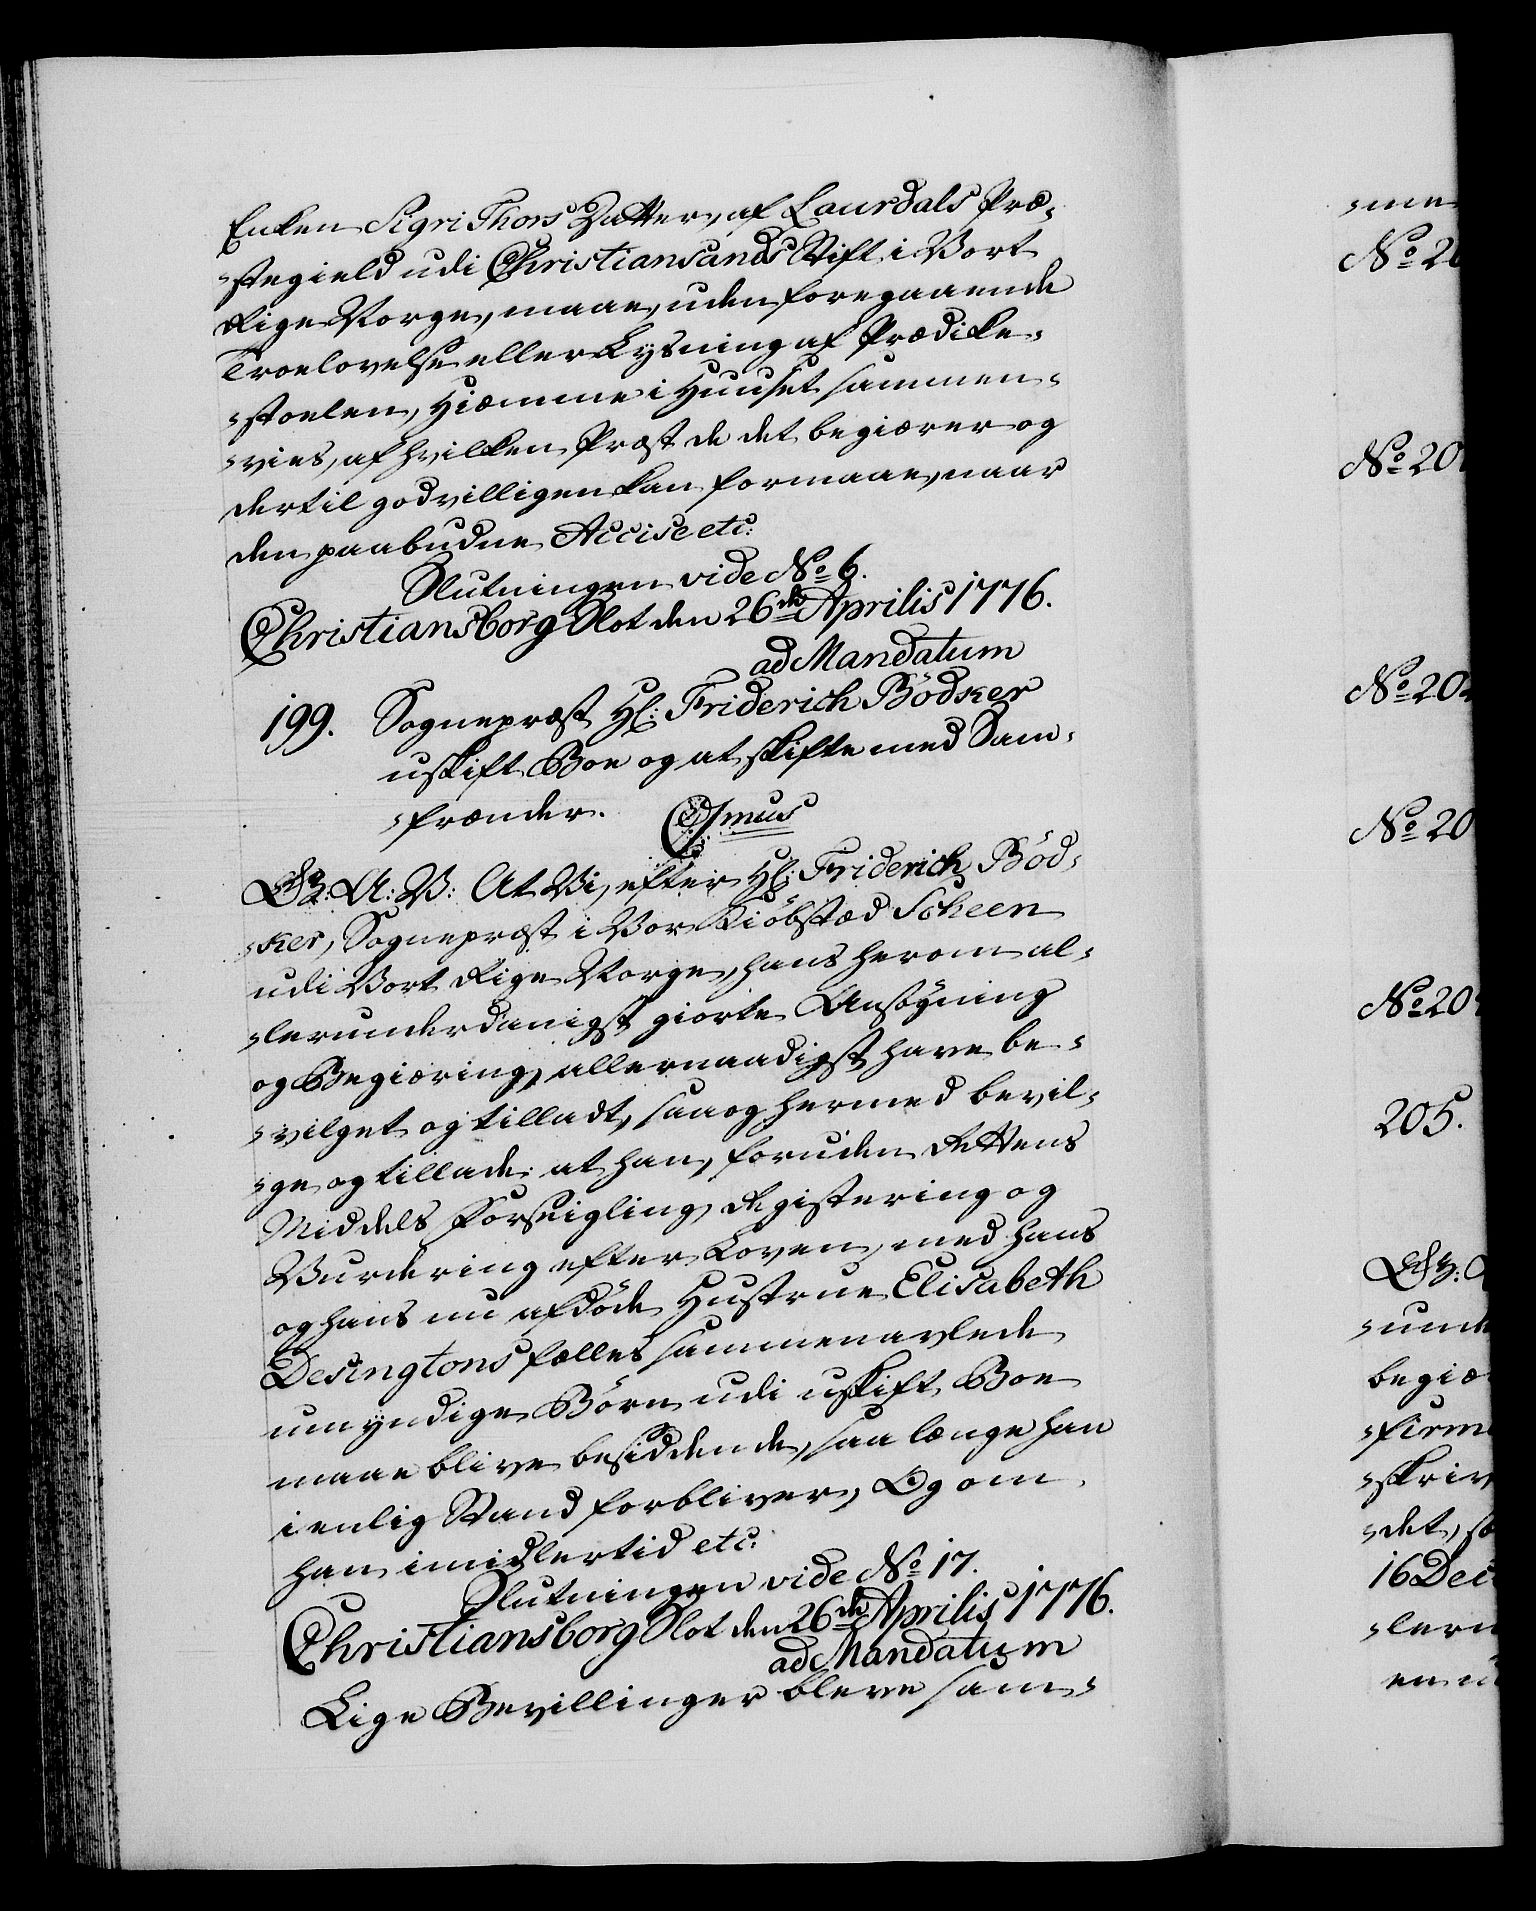 Enken Sigri Thors Datter, af Laurdals Præ-
-stegield udi Christiansands Stift i Vort
Rige Norge, maae, uden foregaaende
Troelovelse eller Lysning af Prædike-
-stoelen, hiemme i Huuset sammen-
-vies, af hvilken Præst de det begiærer og
dertil godvilligen kan formaae, naar
den paabudne Accise etc:
Slutningen vide No 6.
Christiansborg Slot den 26de Aprilis 1776.
ad Mandatum
199. Sognepræst Hr: Friderich Bödker
uskift Boe og at skifte med Sam-
-frænder.
Gr: A: V: At Vi, efter Hr: Friderich Böd-
-ker, Sognepræst i Vor Kiöbstæd Scheen
udi Vort Rige Norge, hans herom al-
-lerunderdanigst giorte Ansögning
og Begiæring, allernaadigst have be-
-vilget og tilladt, saa og hermed bevil-
-ge og tillade: at han, foruden Rettens
Middels Forseigling, Registering og
Vurdering efter Loven, med hans
og hans nu afdöde Hustrue Elisabeth
Desingtons fælles sammenavlede
umyndige Börn udi uskift Boe
maae blive besiddende, saa længe han
i enlig Stand forbliver, Og om
han imidlertid etc:
Slutningen vide No 17.
Christiansborg Slot den 26de Aprilis 1776.
ad Mandatum
Lige Bevillinger bleve sam-
-me
No 20
No 20
No 20
No 20
205.
begiæ
-skriv
-det, sa
16 Dec